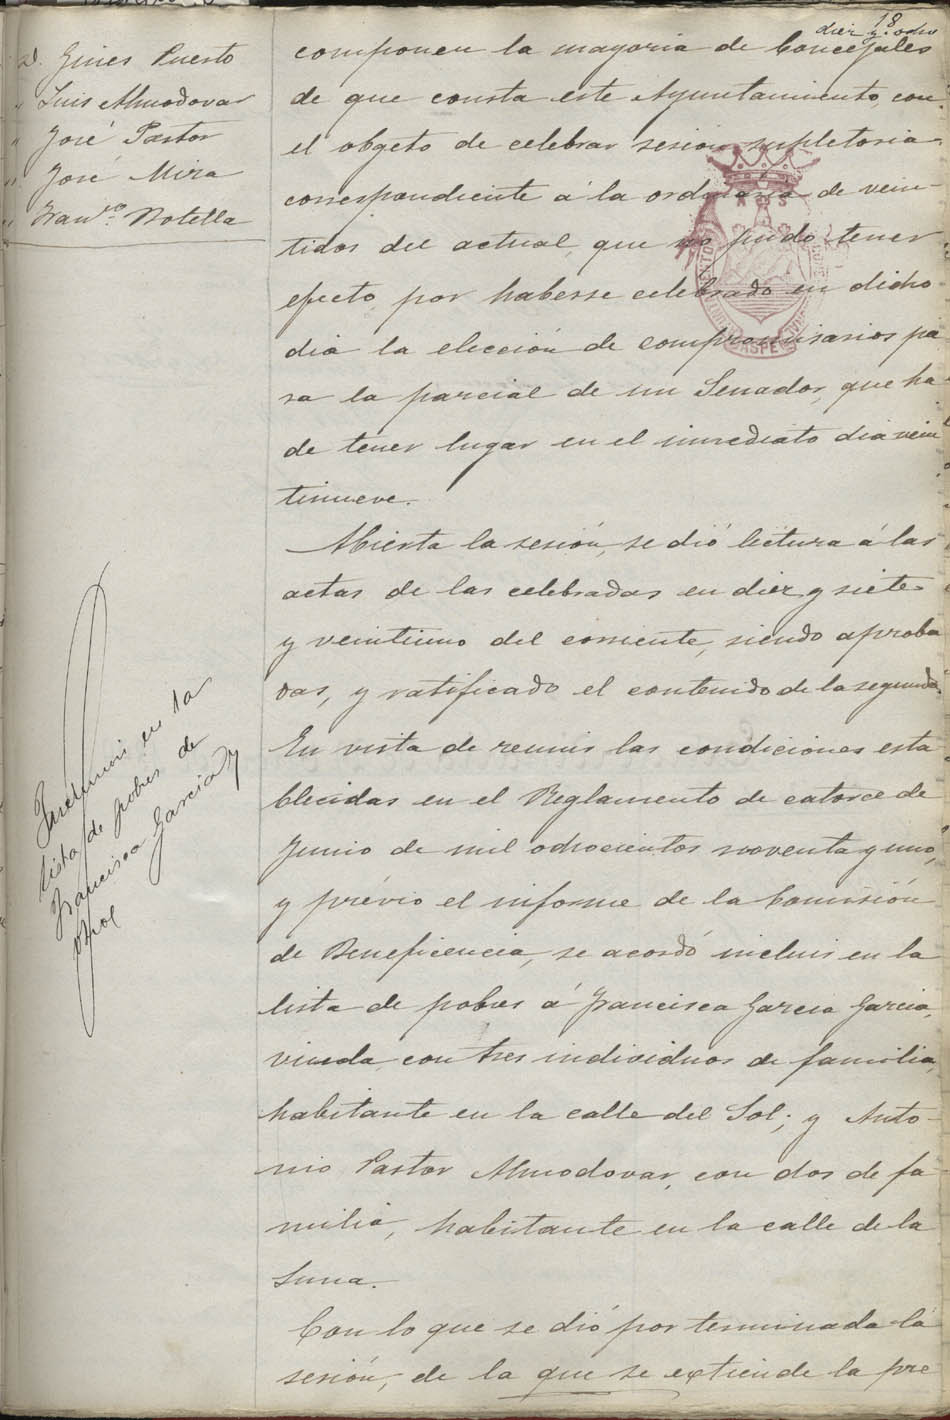 18
diez y ocho
D. Gines Puerto
" Luis Almodovar
" José Pastor
" José Mira
" Franco. Botella
componen la mayoria de Concejales
de que consta este Ayuntamiento, con
el obgeto de celebrar sesion supletoria
correspondiente á la ordinaria de vein-
tidos del actual, que no pudo tener
efecto, por haberse celebrado en dicho
dia la elección de compromisarios pa
ra la parcial de un Senador, que ha
de tener lugar en el inmediato dia vein
tinueve.
Abierta la sesión, se dió lectura á las
actas de las celebradas en diez y siete
y veintiuno del corriente, siendo aproba
das, y ratificado el contenido de la segunda.
En vista de reunir las condiciones esta
blecidas en el Reglamento de catorce de
Junio de mil ochocientos noventa y uno,
y prévio el informe de la Comisión
de Beneficencia, se acordó incluir en la
lista de pobres á Francisca Garcia Garcia,
viuda, con tres individuos de familia,
habitante en la calle del Sol; y Anto-
nio Pastor Almodovar, con dos de fa-
milia, habitante en la calle de la
Luna.
Con lo que se dió por terminada la
sesión, de la que se extiende la pre
Inclusión en la
lista de pobres de
Francisca Garcia y
otro